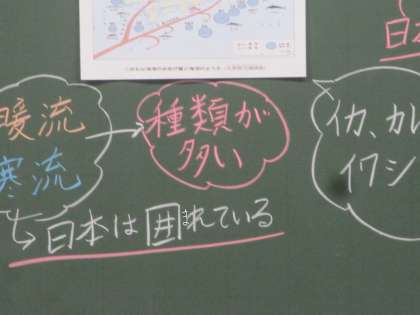 暖流
寒流
種類が
多い
イカ、カレ
イワシ
日本は囲まれている
日本